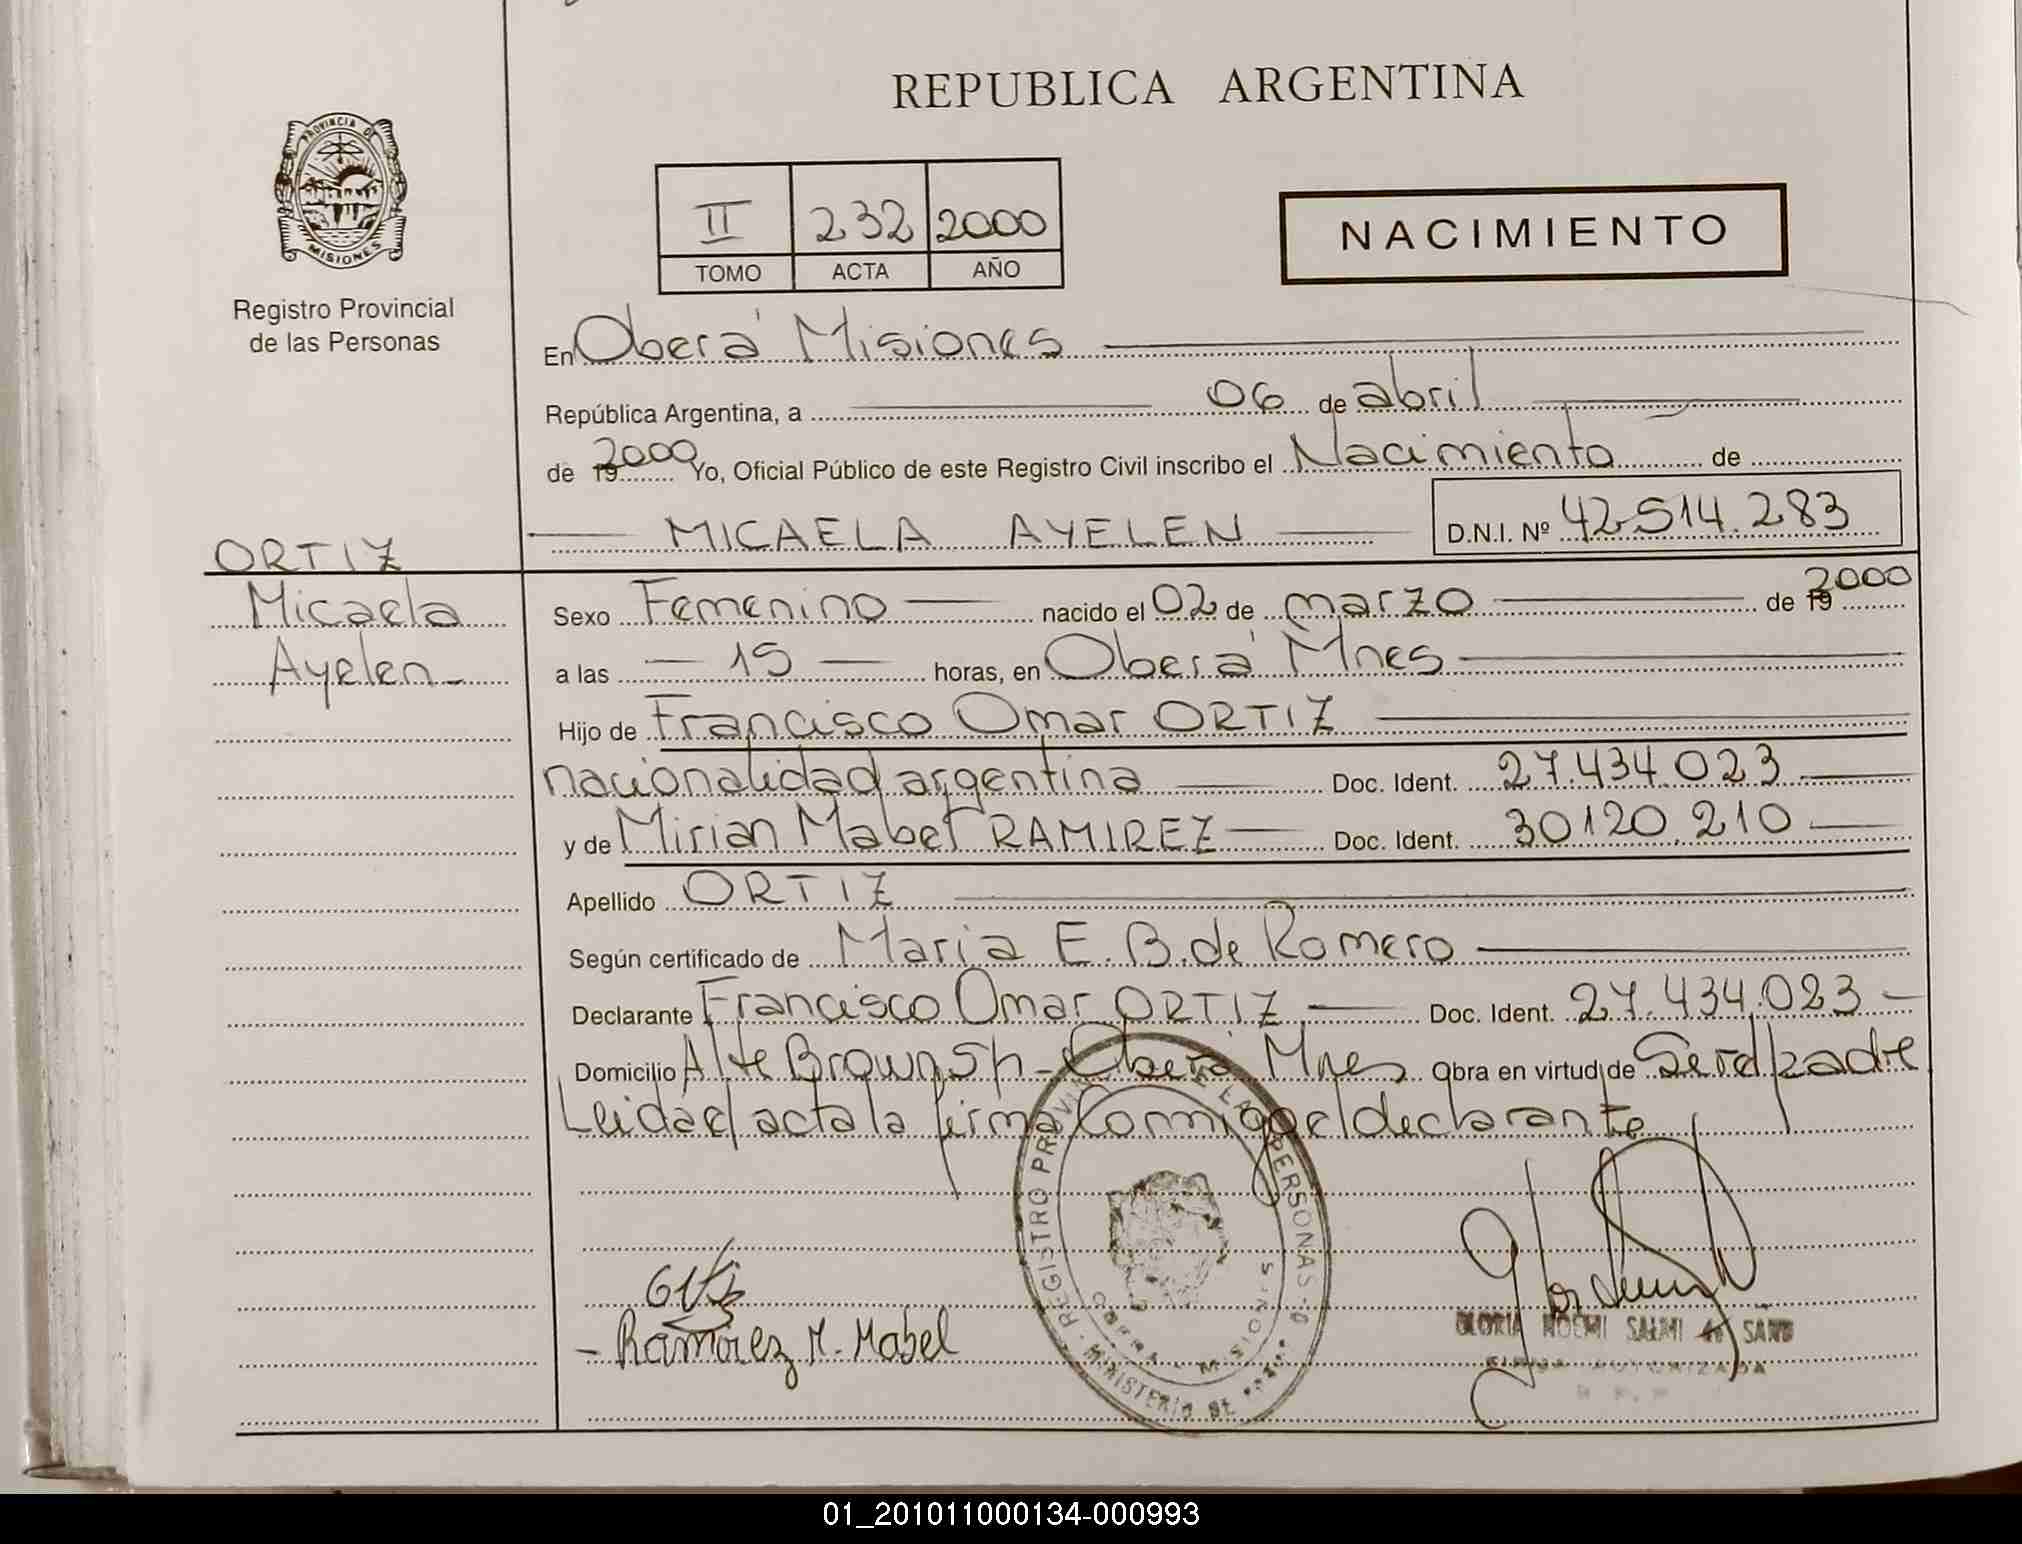 REPUBLICA ARGENTINA
PROVINCIA DE
MISIONES
Registro Provincial
de las Personas
II 232 2000
TOMO ACTA AÑO
NACIMIENTO
En Oberá Misiones
República Argentina, a 06 de abril
de 19 2000 Yo, Oficial Público de este Registro Civil inscribo el Nacimiento de
MICAELA AYELEN D.N.I. Nº 42.514.283
ORTIZ
Micaela
Ayelen
Sexo Femenino nacido el 02 de marzo de 19 2000
a las 15 horas, en Oberá Mnes
Hijo de Francisco Omar ORTIZ
nacionalidad argentina Doc. Ident. 27.434.023
y de Mirian Mabel RAMIREZ Doc. Ident. 30120.210
Apellido ORTIZ
Según certificado de Maria E. B. de Romero
Declarante Francisco Omar ORTIZ Doc. Ident. 27.434.023
Domicilio Alte Brown s/n - Oberá Mnes Obra en virtud de Ser el padre
Leida el acta la firma conmigo el declarante
REGISTRO DE LAS PERSONAS
MINISTERIO DE
Ramirez M. Mabel
GLORIA NOEMI
01_201011000134-000993